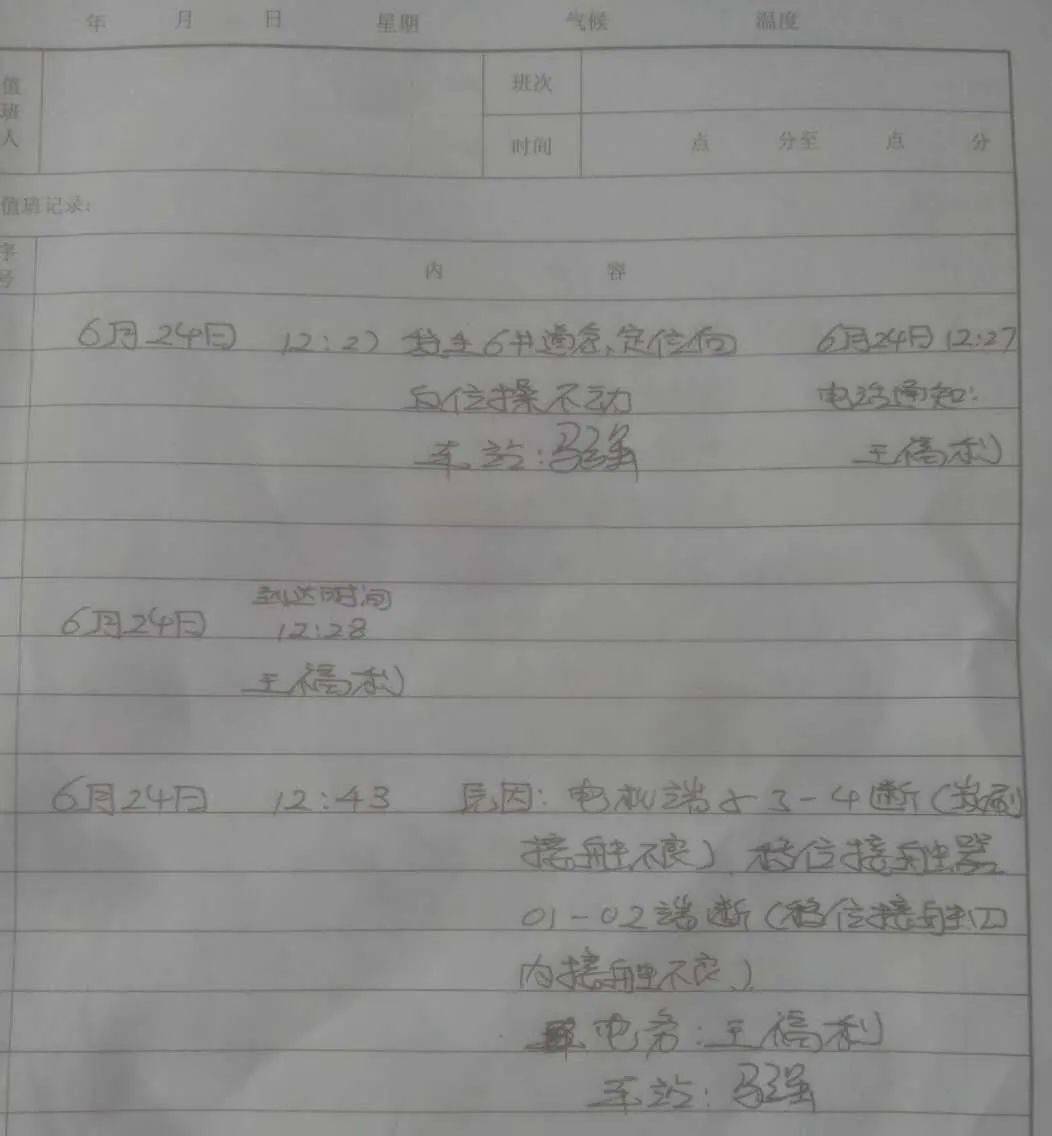 年 月 日 星期 气候 温度
值班人 班次
时间 点 分至 点 分
值班记录:
字号 内 容
6月24日 12:27 发生6#道岔、定位向 6月24日 12:27
反位操不动 电话通知:
车站:马强 王福利
到达时间
6月24日 12:28
王福利
6月24日 12:43 原因:电机端子3-4断(
接触不良)、移位接触器
01-02端断(移位接触
内接触不良)
电务:王福利
车站:马强